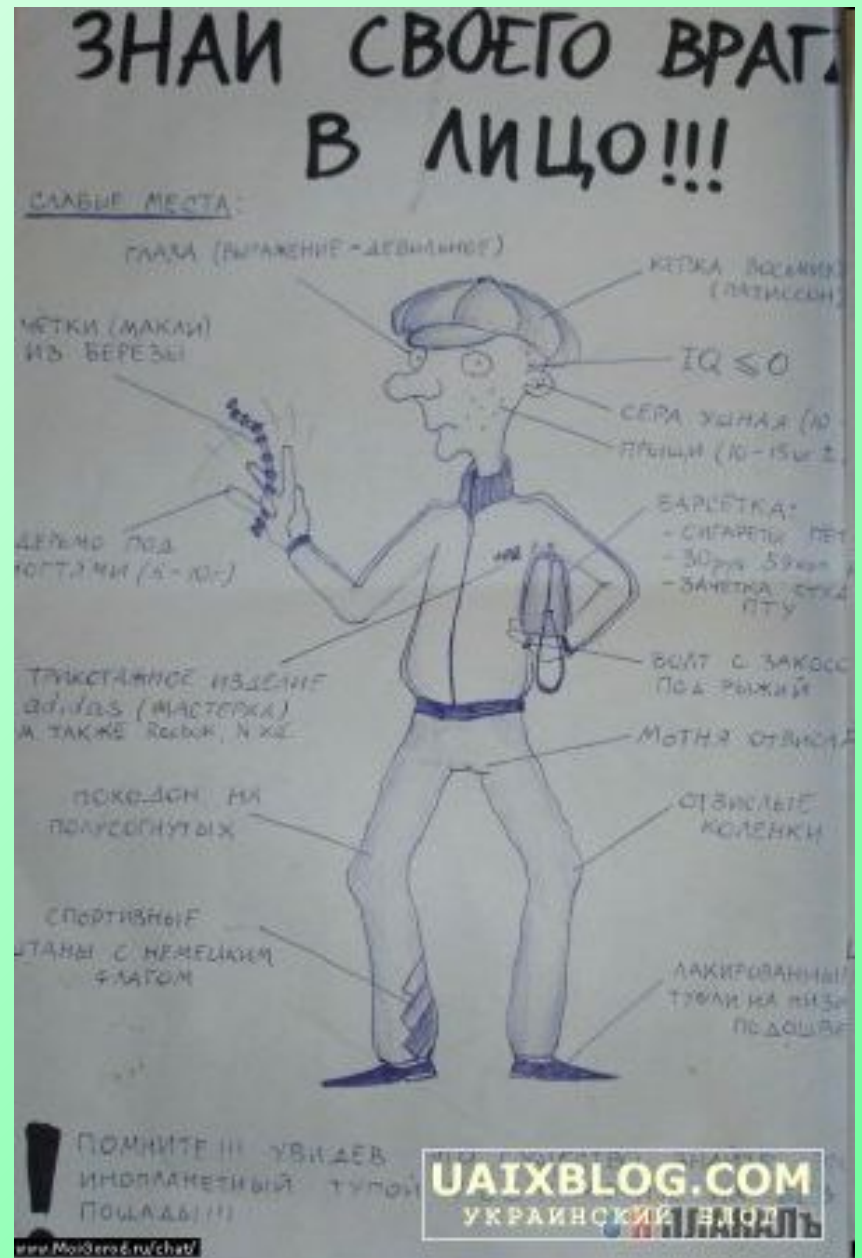 ЗНАЙ СВОЕГО ВРАГА
В ЛИЦО!!!
СЛАБЫЕ МЕСТА:
ГЛАЗА (ВЫРАЖЕНИЕ - ДЕБИЛЬНОЕ)
КЕПКА
ЧЁТКИ (МАКЛИ)
ИЗ БЕРЕЗЫ
IQ ≤ 0
СЕРА УШНАЯ (10
ПРЫЩИ (10-15ш ±
ДЕРЬМО ПОД
НОГТЯМИ
БАРСЕТКА:
- СИГАРЕТЫ
- 30руб
- ЗАЧЕТКА
ПТУ
ТРИКОТАЖНОЕ ИЗДЕЛИЕ
adidas (МАСТЕРКА)
А ТАКЖЕ Reebok,
БОЛТ С
ПОД РЫЖИЙ
МОТНЯ
ПОХОДОН НА
ПОЛУСОГНУТЫХ
ОТВИСЛЫЕ
КОЛЕНКИ
СПОРТИВНЫЕ
ШТАНЫ С НЕМЕЦКИМ
ФЛАГОМ
ЛАКИРОВАННЫ
ТУФЛИ НА
ПОДОШВ
! ПОМНИТЕ!!! УВИДЕВ
ИНОПЛАНЕТНЫЙ ТУПОЙ
ПОЩАДЫ!!!
UAIXBLOG.COM
УКРАИНСКИЙ БЛОГ
Я ПЛАКАЛЪ
www.MoiGorod.ru/chat/